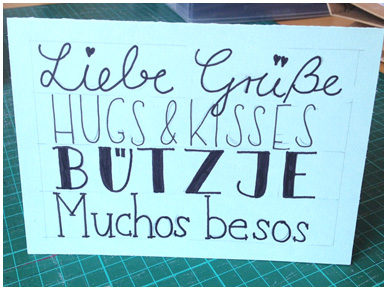 Liebe Grüße
HUGS & KISSES
BÜTZJE
Muchos besos